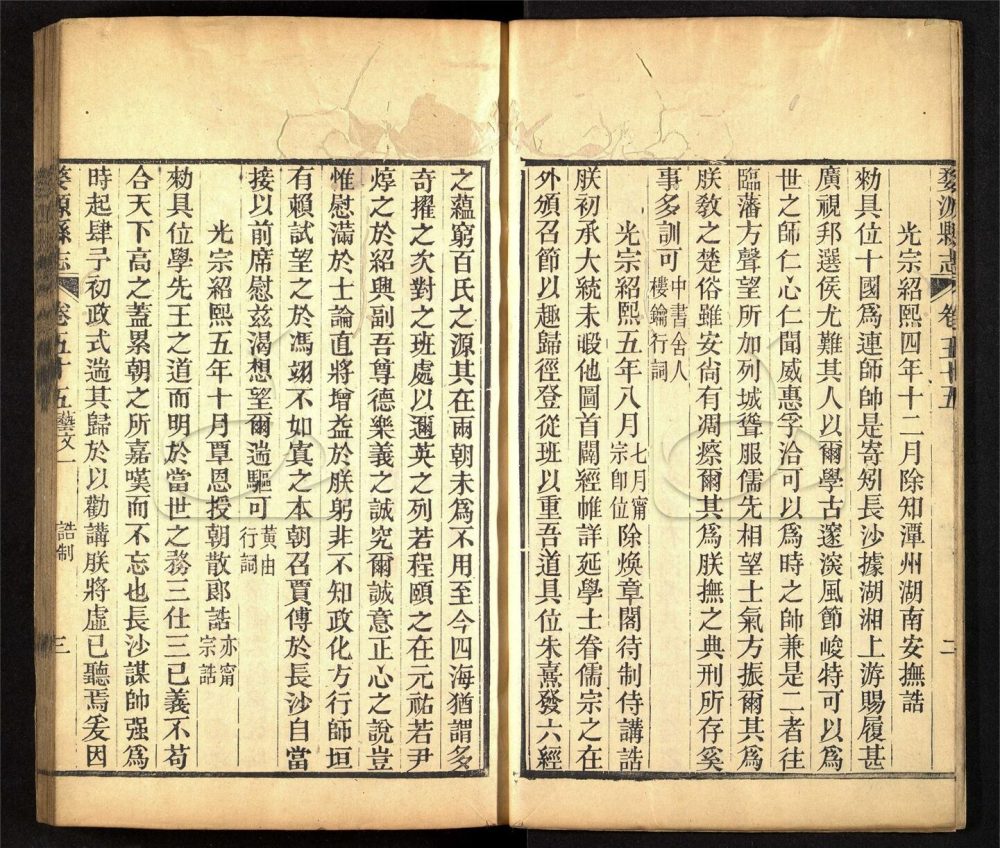 婺源縣志 卷五十五 二
光宗紹熙四年十二月除知潭州湖南安撫誥
勑具位十國爲連師帥是寄矧長沙據湖湘上游賜履甚
廣視邦選侯尤難其人以爾學古邃深風節峻特可以爲
世之師仁心仁聞威惠孚洽可以爲時之帥兼是二者往
臨藩方聲望所加列城聳服儒先相望士氣方振爾其爲
朕敎之楚俗雖安尙有凋瘵爾其爲朕撫之典刑所存奚
事多訓可中書舍人樓鑰行詞
光宗紹熙五年八月七月甯宗卽位除煥章閣待制侍講誥
朕初承大統未暇他圖首闢經帷詳延學士眷儒宗之在
外頒召節以趣歸徑登從班以重吾道具位朱熹發六經
之蘊窮百氏之源其在兩朝未爲不用至今四海猶謂多
奇擢之次對之班處以邇英之列若程頤之在元祐若尹
焞之於紹興副吾尊德樂義之誠究爾誠意正心之說豈
惟慰滿於士論直將增益於朕躬非不知政化方行師垣
有賴試望之於馮翊不如寘之本朝召賈傅於長沙自當
接以前席慰玆渴想望爾遄驅可黃由行詞
光宗紹熙五年十月覃恩授朝散郞誥亦甯宗誥
勑具位學先王之道而明於當世之務三仕三已義不苟
合天下高之蓋累朝之所嘉嘆而不忘也長沙謀帥强爲
時起肆予初政式遄其歸於以勸講朕將虛已聽焉爰因
婺源縣志 卷五十五 藝文一 誥制 三